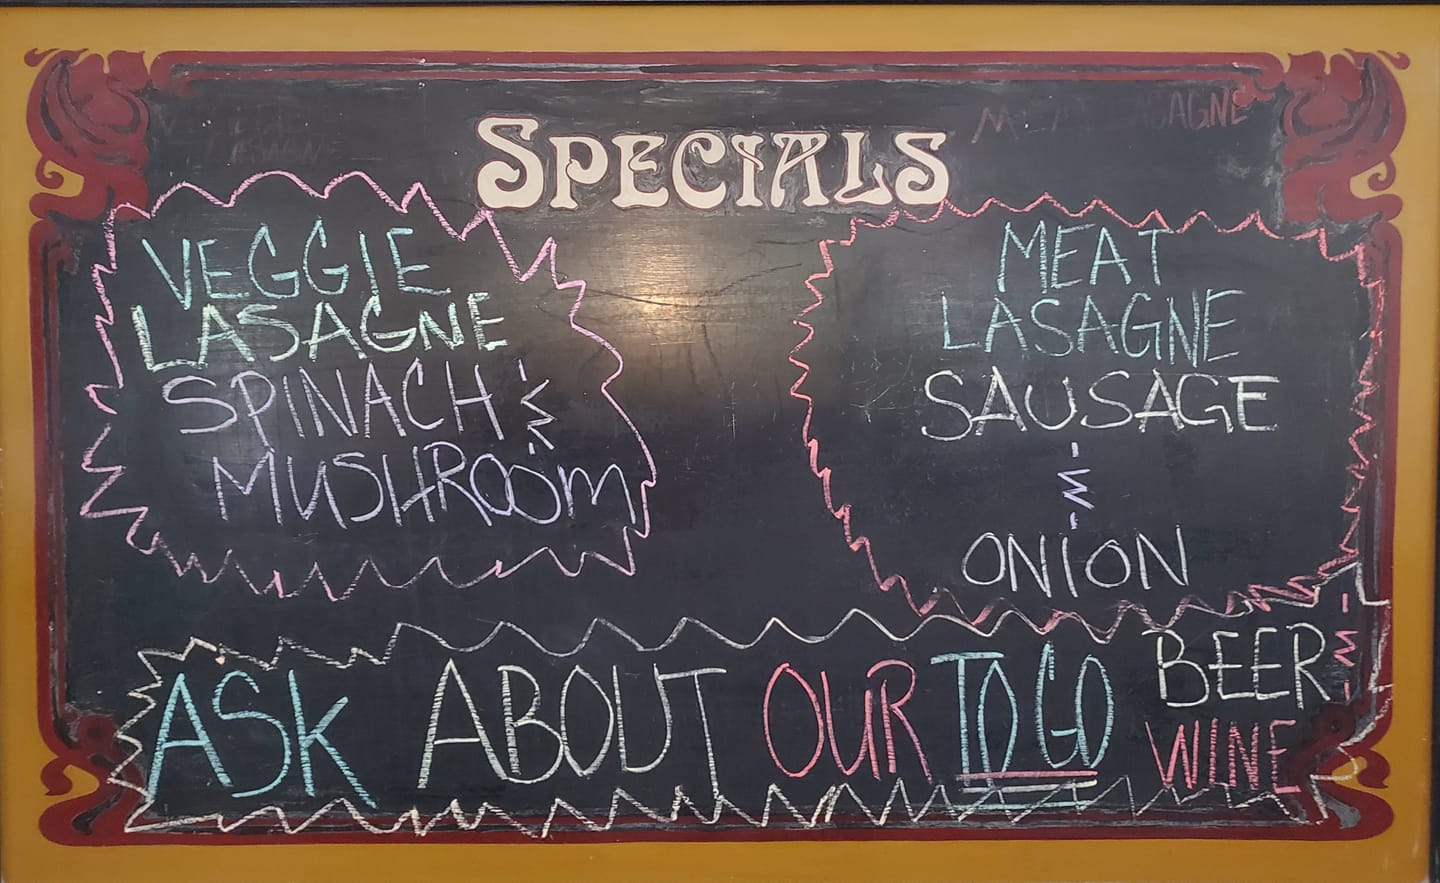 SPECIALS
VEGGIE
LASAGNE
SPINACH &
MUSHROOM
MEAT
LASAGNE
SAUSAGE
&
ONION
ASK ABOUT OUR TO GO BEER &
WINE